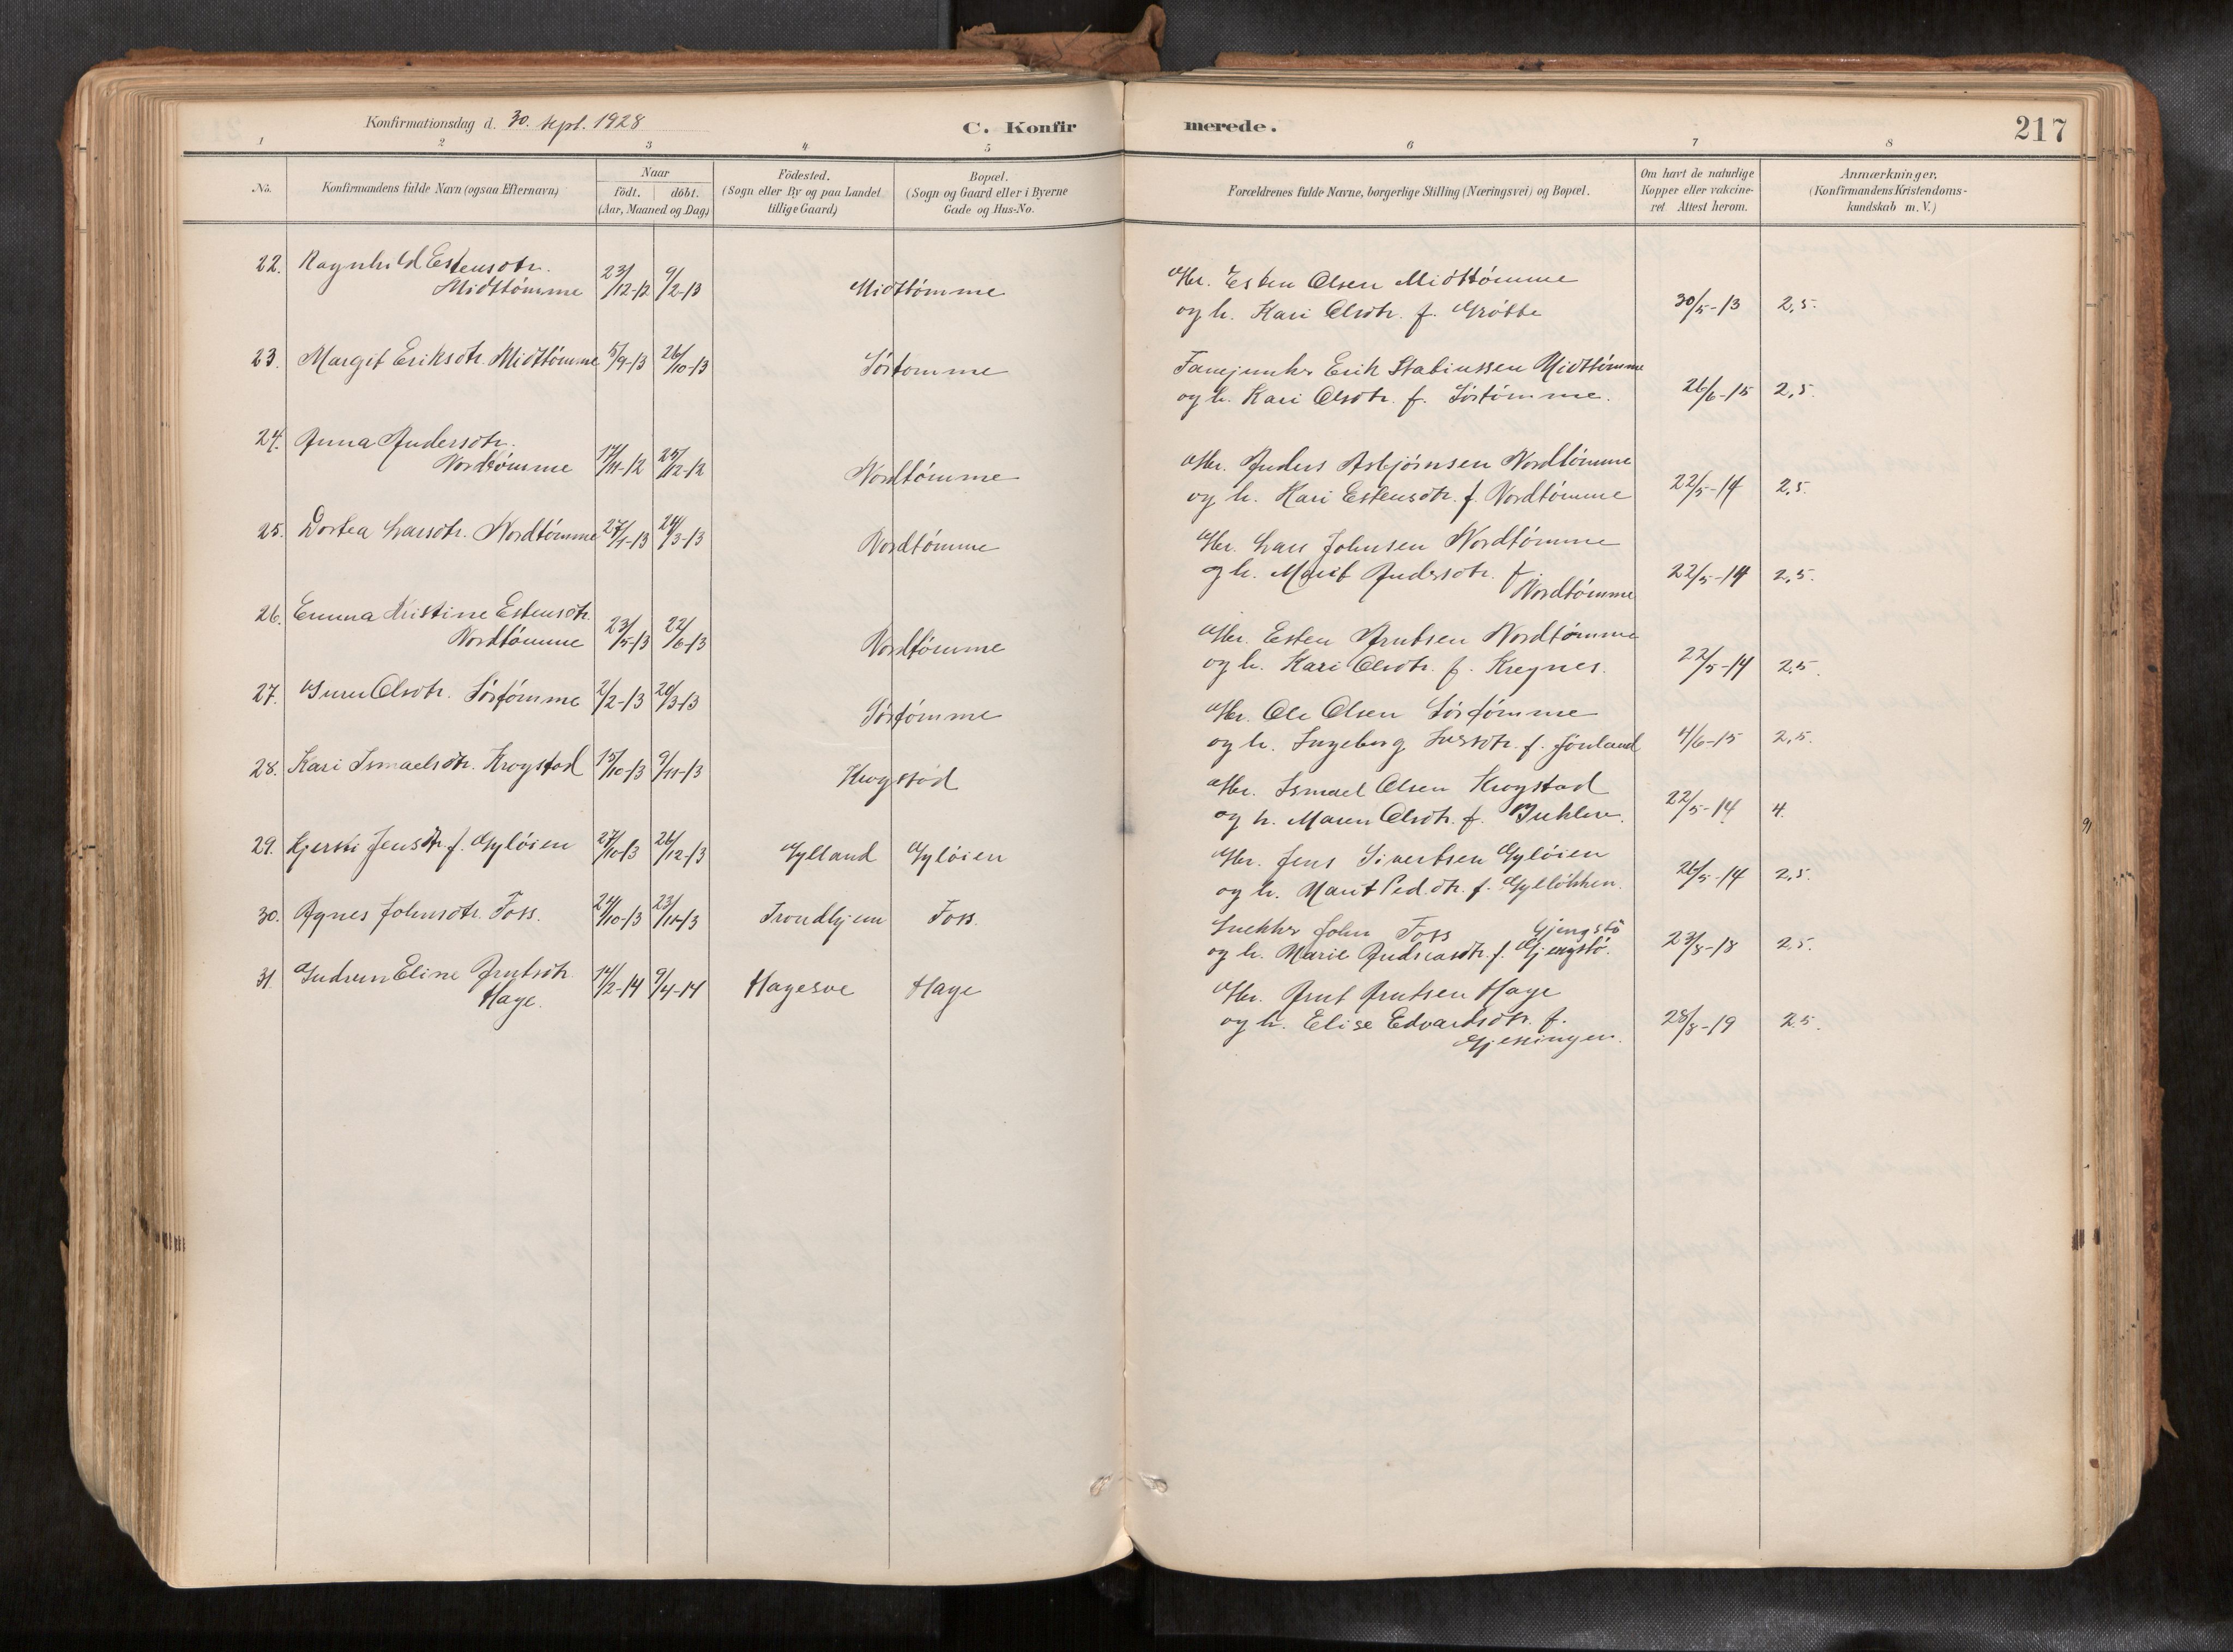 Konfirmationsdag d. 30. sept. 1928
C. Konfirmerede.
217
1 2 3 4 5 6 7 8
No.
Konfirmandens fulde Navn (ogsaa Efternavn)
Naar
födt. döbt.
(Aar, Maaned og Dag)
Födested.
(Sogn eller By og paa Landet
tillige Gaard)
Bopæl.
(Sogn og Gaard eller i Byerne
Gade og Hus-No.
Forældrenes fulde Navne, borgerlige Stilling (Næringsvei) og Bopæl.
Om havt de naturlige
Kopper eller vakcine-
ret Attest herom.
Anmærkninger,
(Konfirmandens Kristendoms-
kundskab m. V.)
22. Ragnhild Estensdtr.
Midttømme 23/12-12 9/2-13 Midttømme
Gbr. Esten Olsen Midttømme
og h. Kari Olsdtr. f. Grøtte 30/5-13 2,5.
23. Margit Eriksdtr. Midttømme 5/9-13 26/10-13 Sørtømme
Fanejunker Erik Midttømme
og h. Kari Olsdtr. f. Sørtømme. 26/6-15 2,5.
24. Anna Andersdtr.
Nordtømme 17/11-12 25/12-12 Nordtømme
Gbr. Anders Asbjørnsen Nordtømme
og h. Kari Estensdtr. f. Nordtømme 22/5-14 2,5.
25. Dortea Larsdtr. Nordtømme 27/1-13 24/3-13 Nordtømme
Gbr. Lars Johnsen Nordtømme
og h. Marit Andersdtr. f.
Nordtømme 22/5-14 2,5.
26. Emma Kristine Estensdtr.
Nordtømme 23/5-13 22/6-13 Nordtømme
Gbr. Esten Arntsen Nordtømme
og h. Kari Olsdtr. f. Kregnes. 22/5-14 2,5.
27. Guru Olsdtr. Sørtømme 2/2-13 20/3-13 Sørtømme
Gbr. Ole Olsen Sørtømme
og h. Ingeborg f. Jønland 4/6-15 2,5.
28. Kari Ismaelsdtr. Krogstad 15/10-13 9/11-13 Krogstad
Gbr. Ismael Olsen Krogstad
og h. Maren Olsdtr. f. 22/5-14 4.
29. Kjersti Jensdtr. f. Gyløien 27/10-13 26/12-13 Gylland Gyløien
Gbr. Jens Sivertsen Gyløien
og h. Marit Ped.dtr. f. Gylløkken. 26/5-14 2,5.
30. Agnes Johnsdtr. Foss. 24/10-13 23/11-13 Trondhjem Foss.
Snekker John Foss Gjengstø
og h. Marie Andreasdtr. f. Gjengstø. 23/8-18 2,5.
31. Gudrun Eline Arntsdtr.
Hage. 14/2-14 9/4-14 Hagesve Hage
Gbr. Arnt Arntsen Hage
og h. Elise Edvardsdtr. f.
28/8-19 2.5.